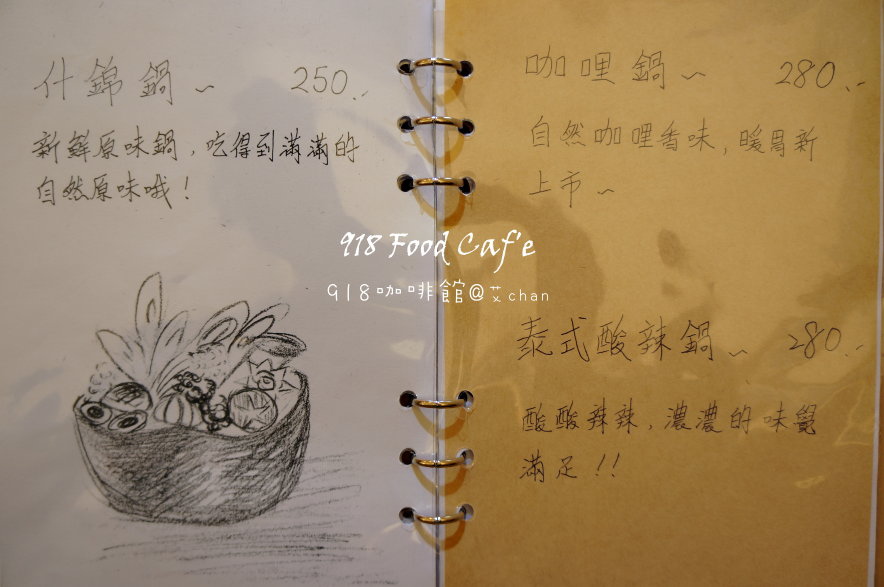 什錦鍋~ 250.-
新鮮原味鍋,吃得到滿滿的
自然原味哦!
咖哩鍋~ 280.-
自然咖哩香味,暖胃新
上市~
918 Food Caf'e
918咖啡館@艾chan
泰式酸辣鍋~ 280.-
酸酸辣辣,濃濃的味覺
滿足!!